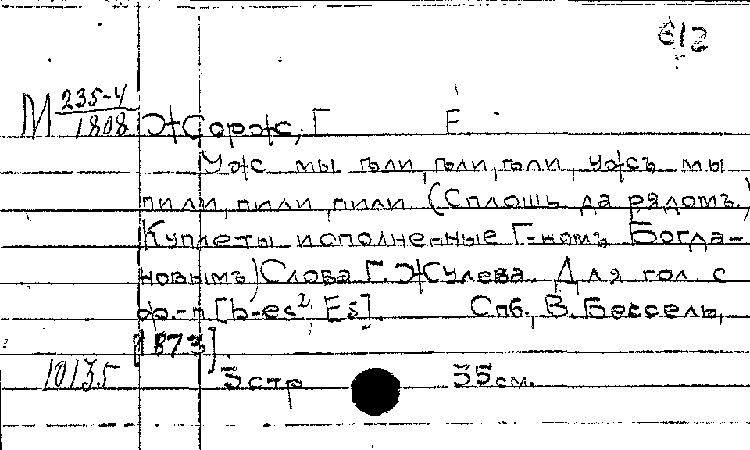 612
М 235-4/1808 Жорж, Г E
Уж мы пили, пили, пили, ужъ мы
пили, пили, пили (Сплошь да рядомъ.)
Куплеты исполненные Г-номъ Богда-
новымъ) Слова Г. Жулева. Для гол с
ф.-п [b-es², Es]. Спб., В. Бессель,
[1873].
10135 5 стр 35 см.